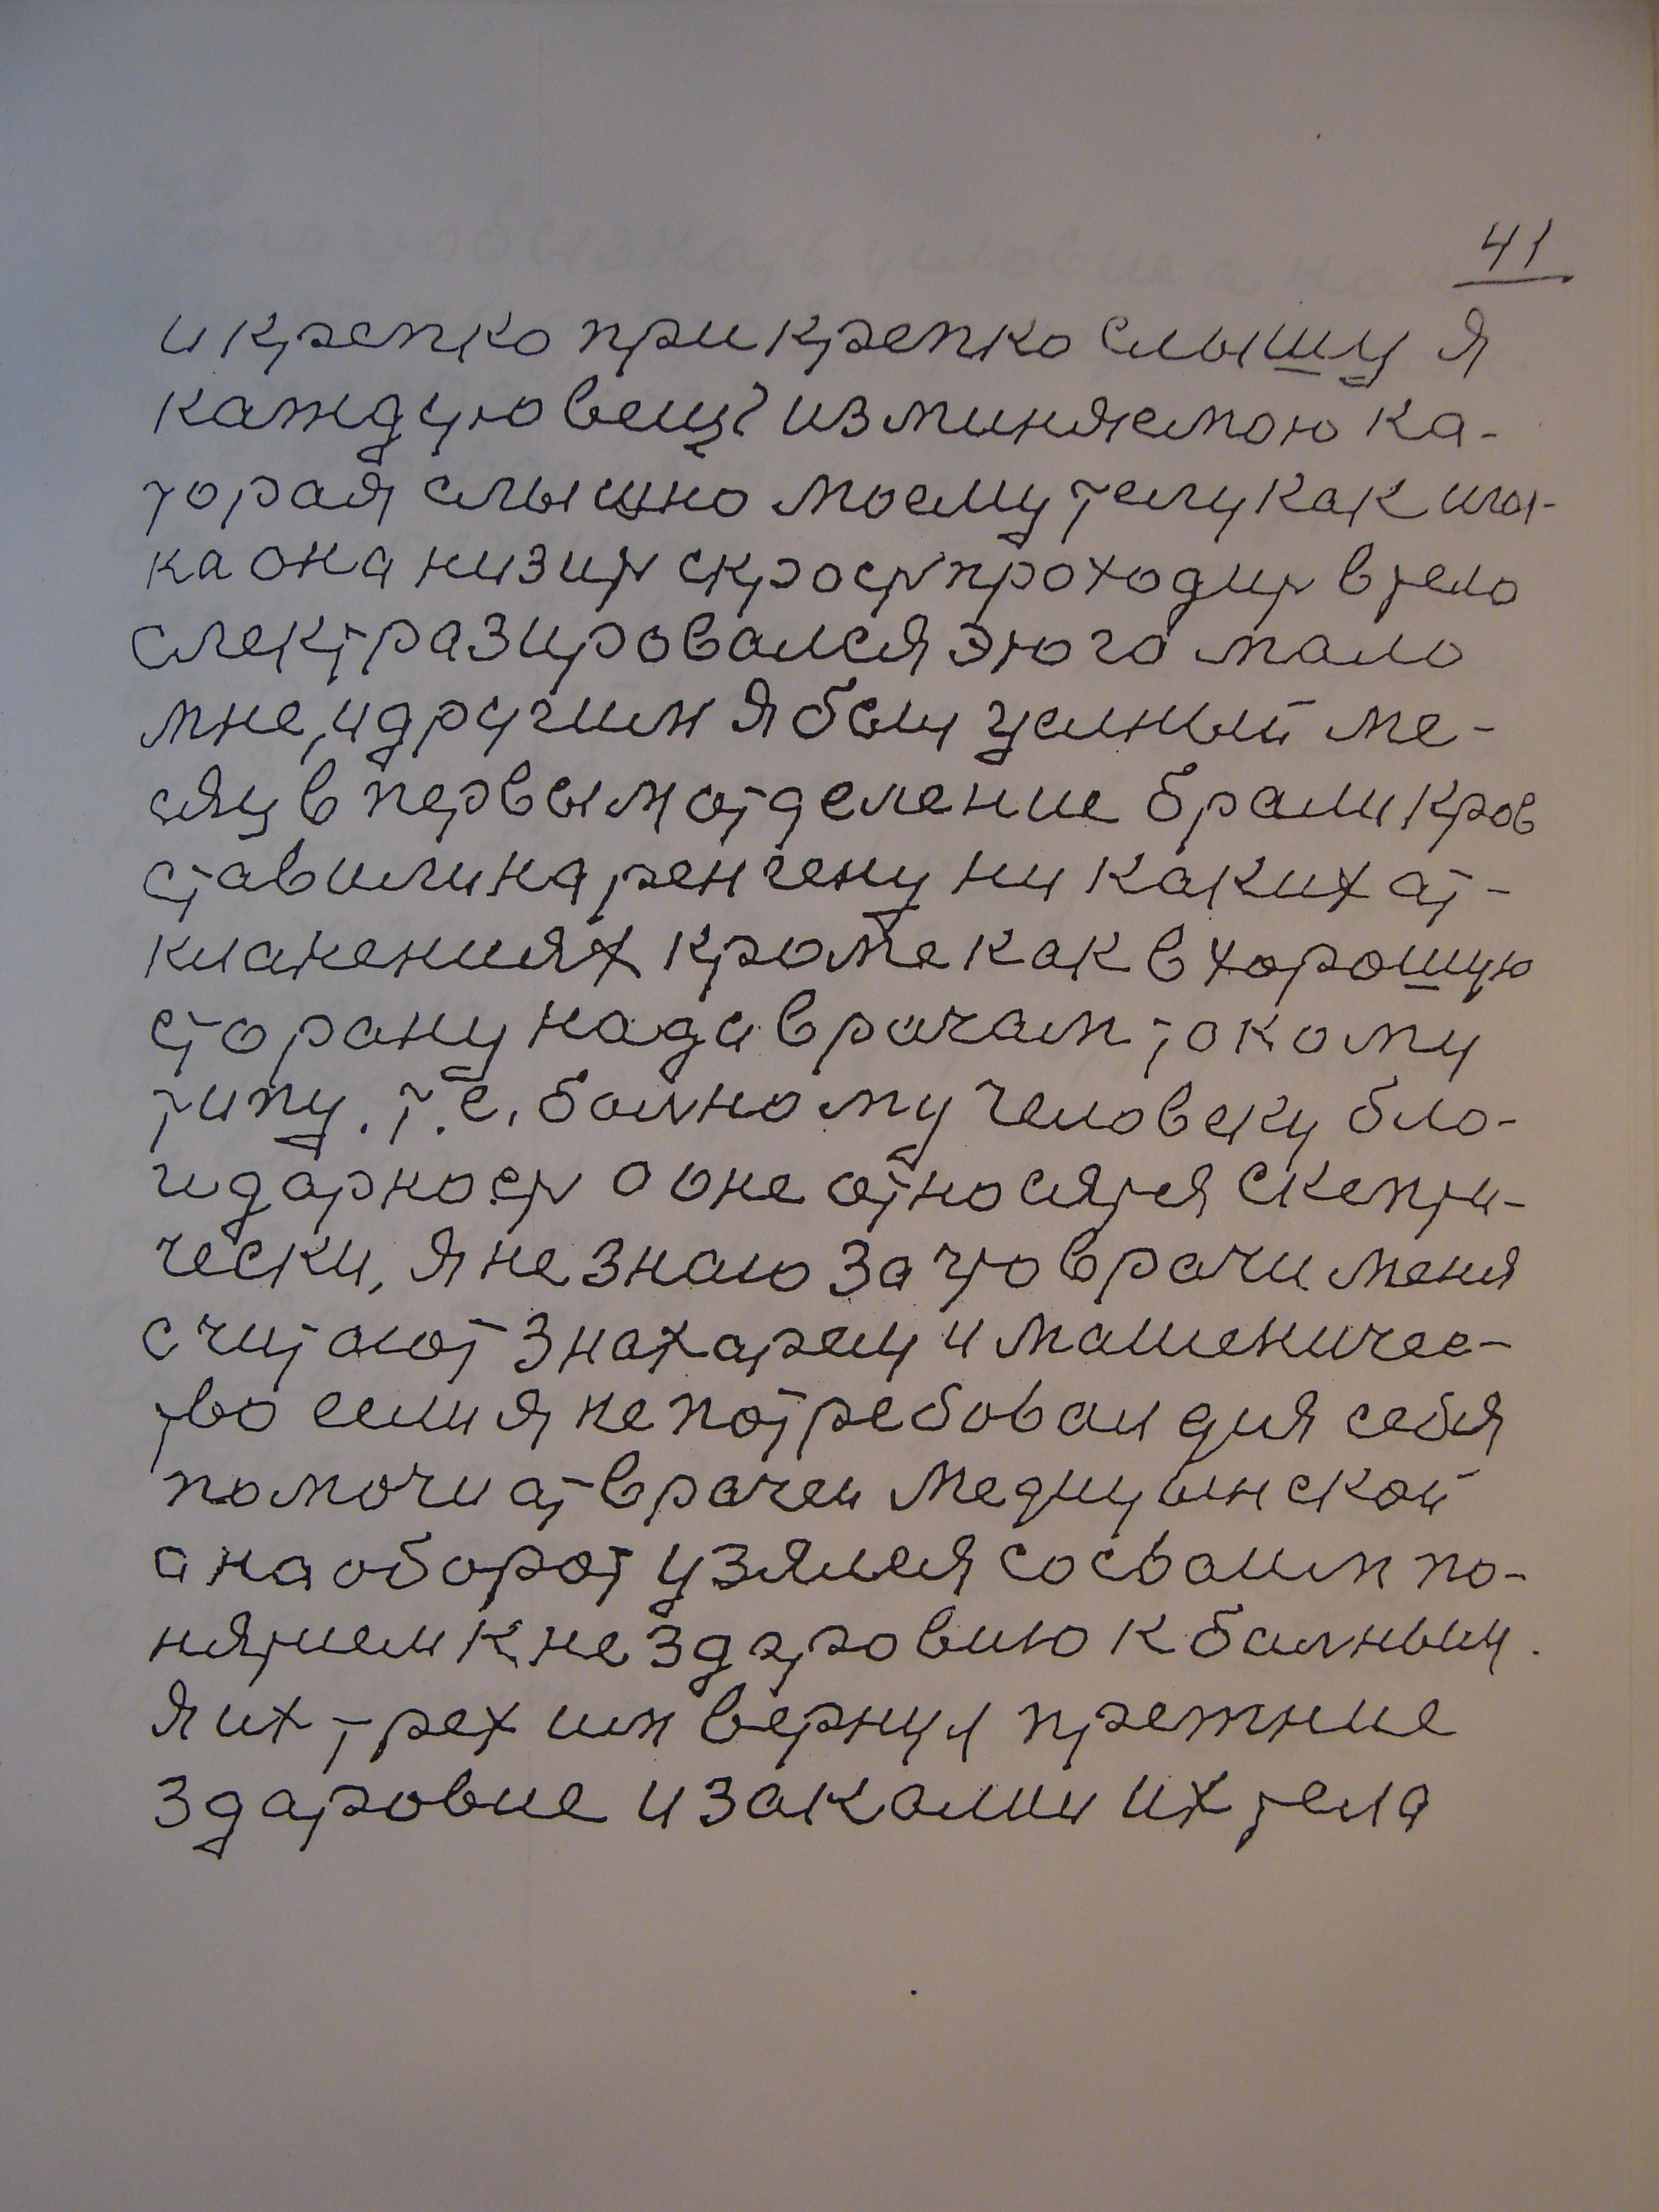 41
и крепко при крепко слышу я
каждую вещ? изминяемою ка-
торая слышно моему телу как игол-
ка она низить скрость проходить в тело
електразировался этого мало
мне, и другим я был целный ме-
сяц в первым отделение брали кров
ставили на ренгену ни каких от-
кланениях кроме как в хорошую
сторану нада врачам такому
типу. т.е. болному человеку бла-
гидарность а оне относятся скепти-
чески, я не знаю за что врачи меня
считают знахарем и машеничес-
тво если я не потребовал для себя
помочи от врачей медицынской
а наоборот узялся сосваим по-
нятием к не здаровию к балным.
я их трех им вернул прежние
здаровие и закалил их тела